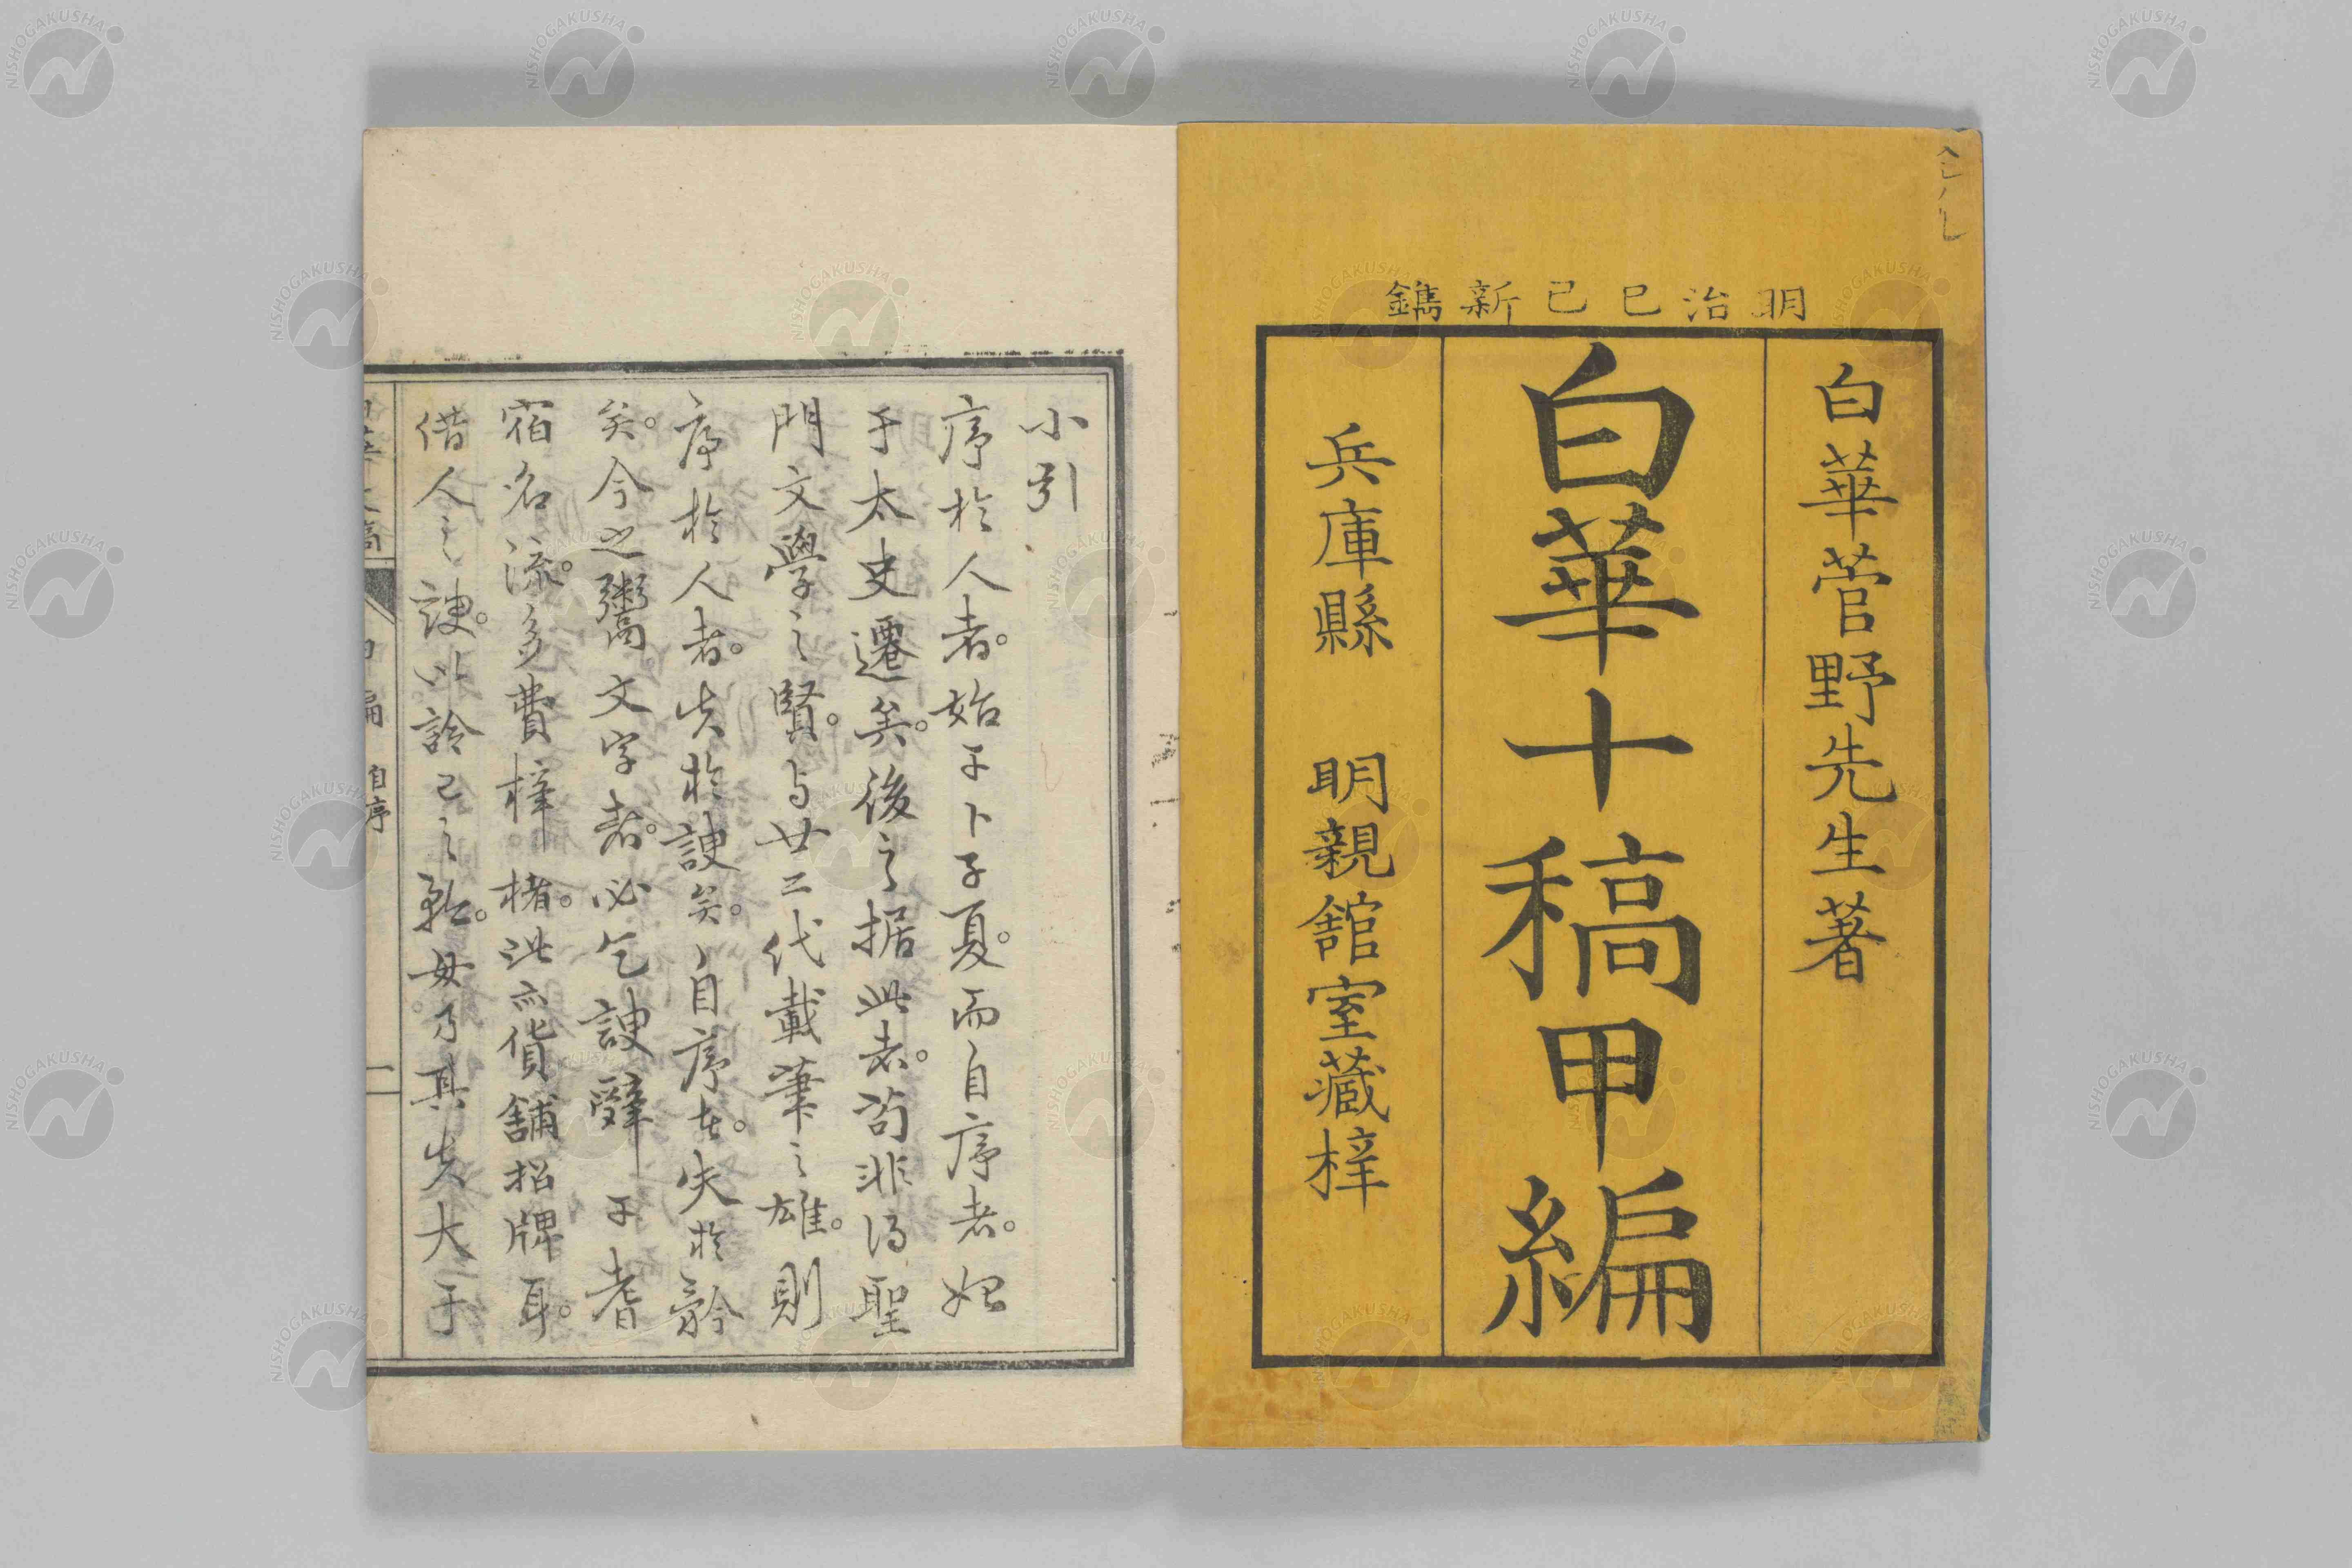 明治巳己新鐫
白華菅野先生著
白華十稿甲編
兵庫縣 明親舘室藏梓
小引
序於人者。始于卜子夏。而自序者。
于太史遷矣。後之据此者。苟非得聖
門文學之賢。与廿二代載筆之雄。則
序於人者。失於諛矣。自序者。失於矜
矣。今之鬻文字者。必乞諛辭于耆
宿名流。多費梓楮。此亦貨舖招牌耳。
借人之諛。以詅己之 毋乃其失大于
自序